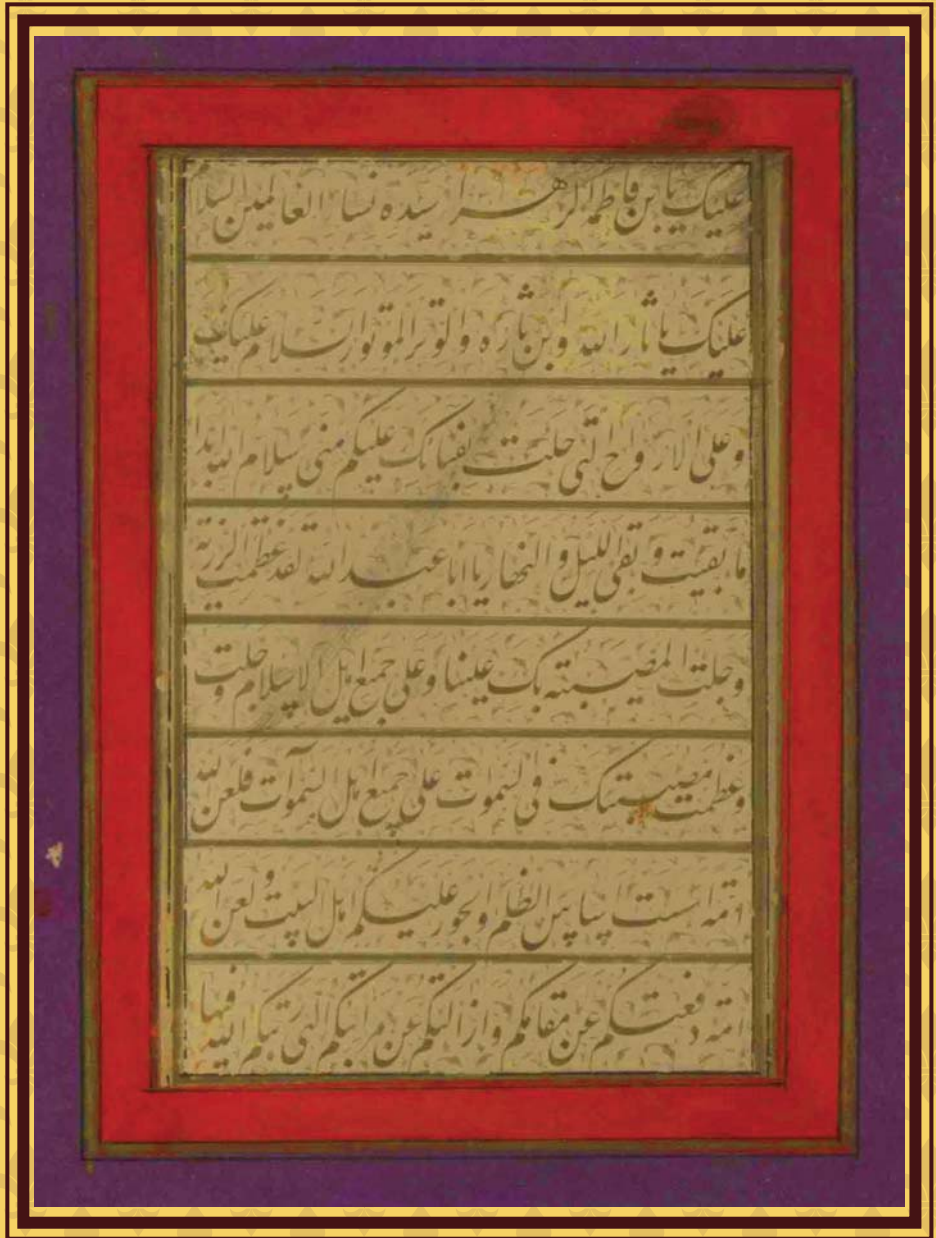 علیک یا بن فاطمة الزهرا سیدة نساء العالمین السلام
علیک یا ثار الله وابن ثاره والوتر الموتور السلام علیک
وعلی الارواح التی حلت بفنائک علیکم منی سلام الله ابدا
ما بقیت وبقی اللیل والنهار یا ابا عبد الله لقد عظمت الرزیة
وجلت المصیبته بک علینا وعلی جمیع اهل الاسلام وجلت
وعظمت مصیبتک فی السموات علی جمیع اهل السموات فلعن الله
امة اسست اساس الظلم والجور علیکم اهل البیت ولعن الله
امة دفعتکم عن مقامکم وازالتکم عن مراتبکم التی رتبکم الله فیها